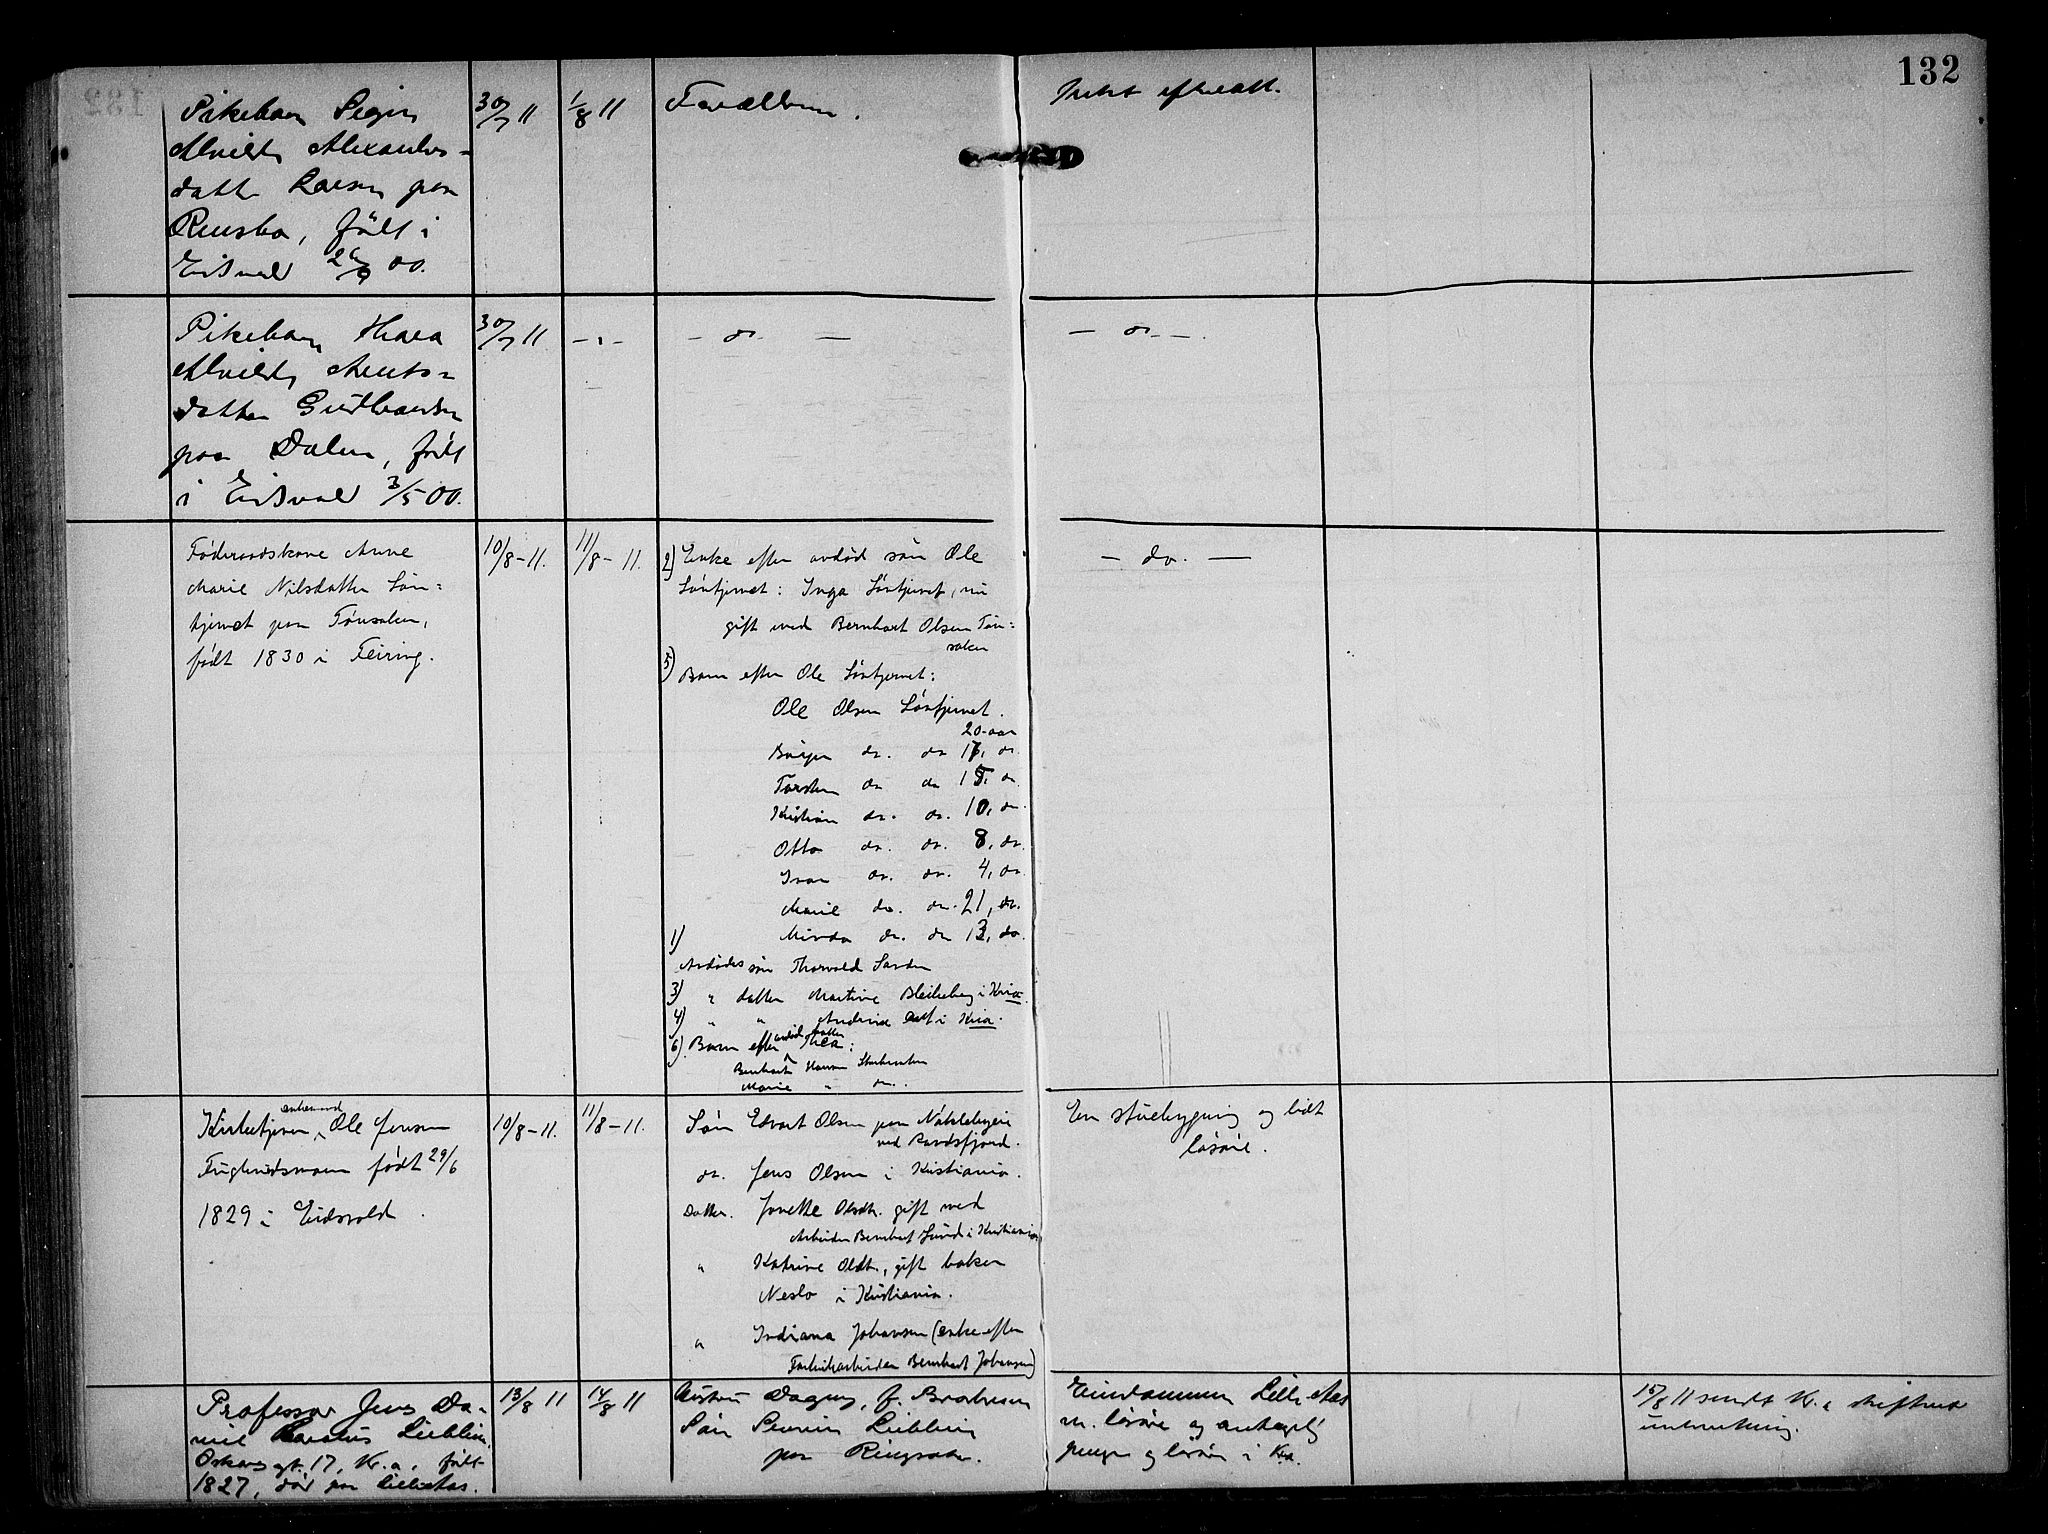 132
Pikebarn Signe
Alvilde Alexanders=
datter Larsen paa
født i
Eidsvol 26/9 00.
30/7 11
1/8 11
Forældrene.
Intet efterlatt.
Pikebarn Thora
Alvilde Arnts=
datter Gulbrandsen
paa Dalen, født
i Eidsvol 3/5 00.
30/7 11
- " -
- do. -
- do. - .
Føderaadskone Anne
Marie Nilsdatter Løn=
tjernet paa Tønsaker,
født 1830 i Feiring.
10/8 - 11.
11/8 - 11.
2) Enke efter avdød søn Ole
Løntjernet: Inga Løntjernet, nu
gift med Bernhart Olsen Tøn=
saker
5) Barn efter Ole Løntjernet:
Ole Olsen Løntjernet.
20 aar
Birger do. do 17, do.
Torsten do do 15, do
Kristian do. do. 10, do.
Otto do. do. 8, do.
Ivar do. do. 4, do.
Marie do. do. 21, do.
Minda do. do 13, do.
1)
Avdødes søn Thorvald
3) " datter Martine i Kria.
4) " " Andrine i Kria.
6) Barn efter avdød datter Thea:
Bernhart Hansen
Marie " do.
Kirketjener enkemand Ole Jensen
født 29/6
1829 i Eidsvold.
10/8 - 11.
11/8 - 11.
Søn Edvart Olsen paa
ved Randsfjord.
do. Jens Olsen i Kristiania.
Datter. Jonette Olsdtr. gift med
Arbeider Bernhart Lund i Kristiania
" Katrine Oldt., gift baker
Neslo i Kristiania.
" Indiana Johansen (enke efter
Fabrikarbeider Bernhart Johansen)
En stuebygning og lidt
løsøre.
Professor Jens Da-
niel Carolus Lieblein,
Oskars gt. 17, Kr.a, født
1827, død paa Lilleaas.
13/8 11
14/8 11
Hustru Dagny, f.
Søn Severin Lieblein
paa Ringsaker.
Eiendommen Lille Aas
m. løsøre og antagelig
penge og løsøre i Kra.
15/8 11 sendt Kr.a skifteret
underretning.